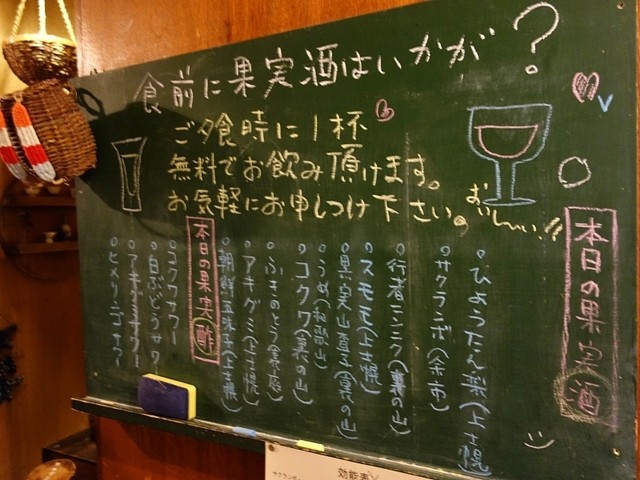 食前に果実酒はいかが?
ご夕食時に1杯
無料でお飲み頂けます。
お気軽にお申しつけ下さい。
おいしーい!!
本日の果実酒
ひょうたん梨(上士幌)
サクランボ(余市)
行者ニンニク(裏の山)
スモモ(上士幌)
うめ(和歌山)
コクワ(裏の山)
ふきのとう
アキグミ(上士幌)
朝鮮五味子
本日の果実酢
コクワサワー
白ぶどうサワー
アキグミサワー
ヒメリンゴサワー
効能表
サクランボ